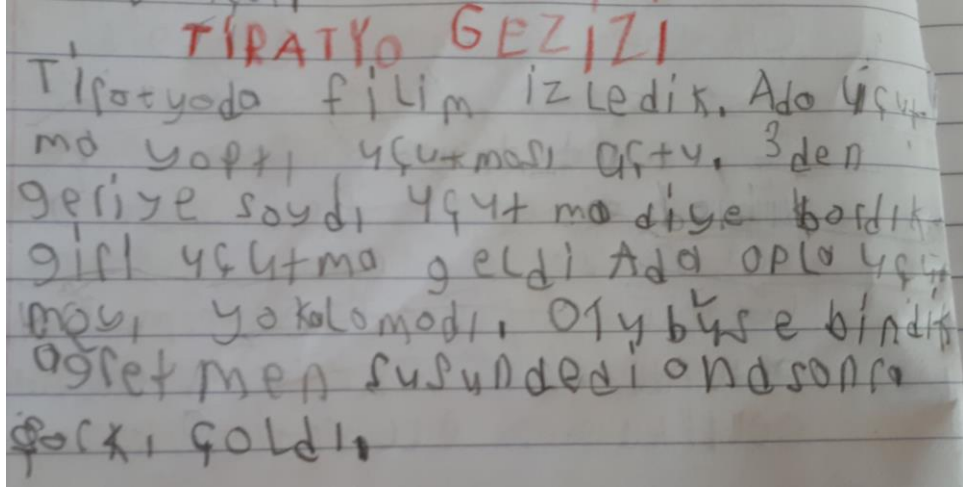 TİRATYO GEZİZİ
Tiratyoda filim izledik. Ada uçut
ma yaptı uçutması açtu. 3 den
geriye saydı uçut ma diye bardık
girl uçutma geldi Ada opla uçut
mayı yakalamadı. Otybüse bindik
öğretmen susundedi ondasonra
şarkı çaldı.